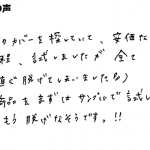 の声
カバーを探していて、安価な
程、試しましたが 全て
直ぐ脱げてしまいました
商品をまずは サンプルで試し
もう 脱げなそうです。!!